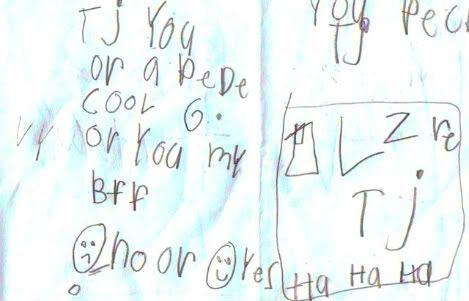 TJ You
or a PeDe
cooL G.
or You my
BFF
no or Yes
You Pec
TJ
L Z re
TJ
Ha Ha Ha